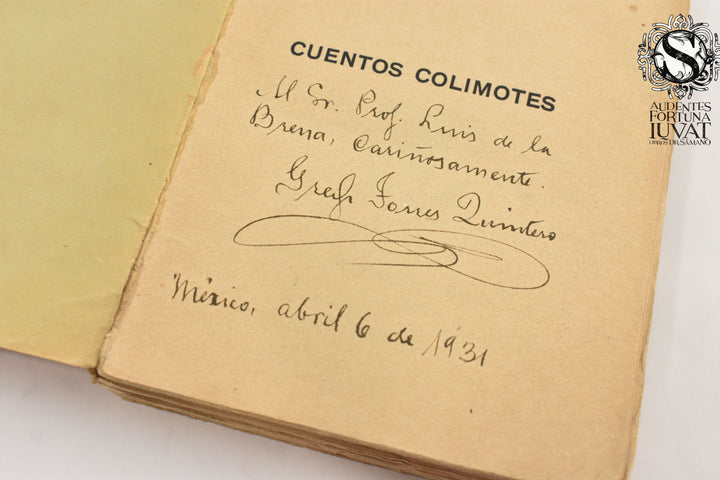 CUENTOS COLIMOTES
Al Sr. Prof. Luis de la
Brena, cariñosamente.
Gregº Torres Quintero
México, abril 6 de 1931
S
AUDENTES
FORTUNA
IUVAT
LIBROS DR. SÁMANO